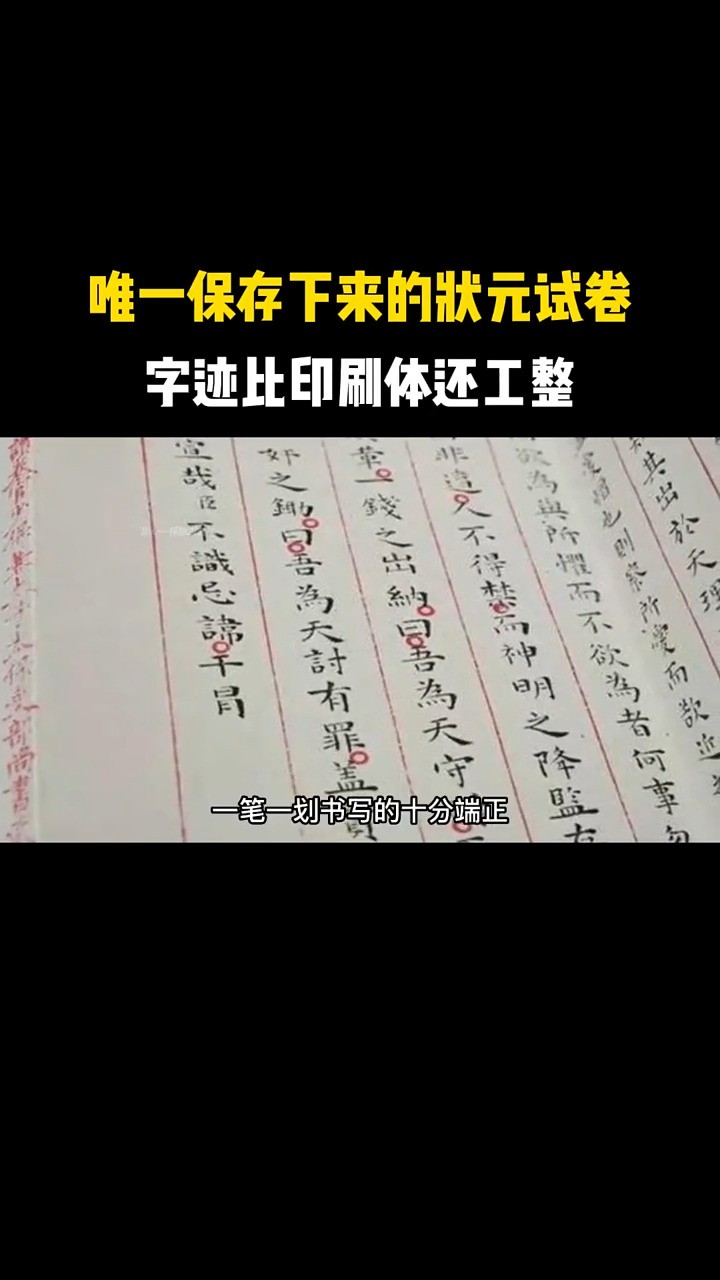 唯一保存下来的狀元试卷
字迹比印刷体还工整
其出於天理
則察所而欲近
欲為與所懼而不欲為者何事勿
非人不得禁而神明之降監
一錢之出納曰吾為天守
奸之鋤曰吾為天討有罪蓋
宣哉臣不識忌諱干冒
太子太保吏部尚書
一笔一划书写的十分端正